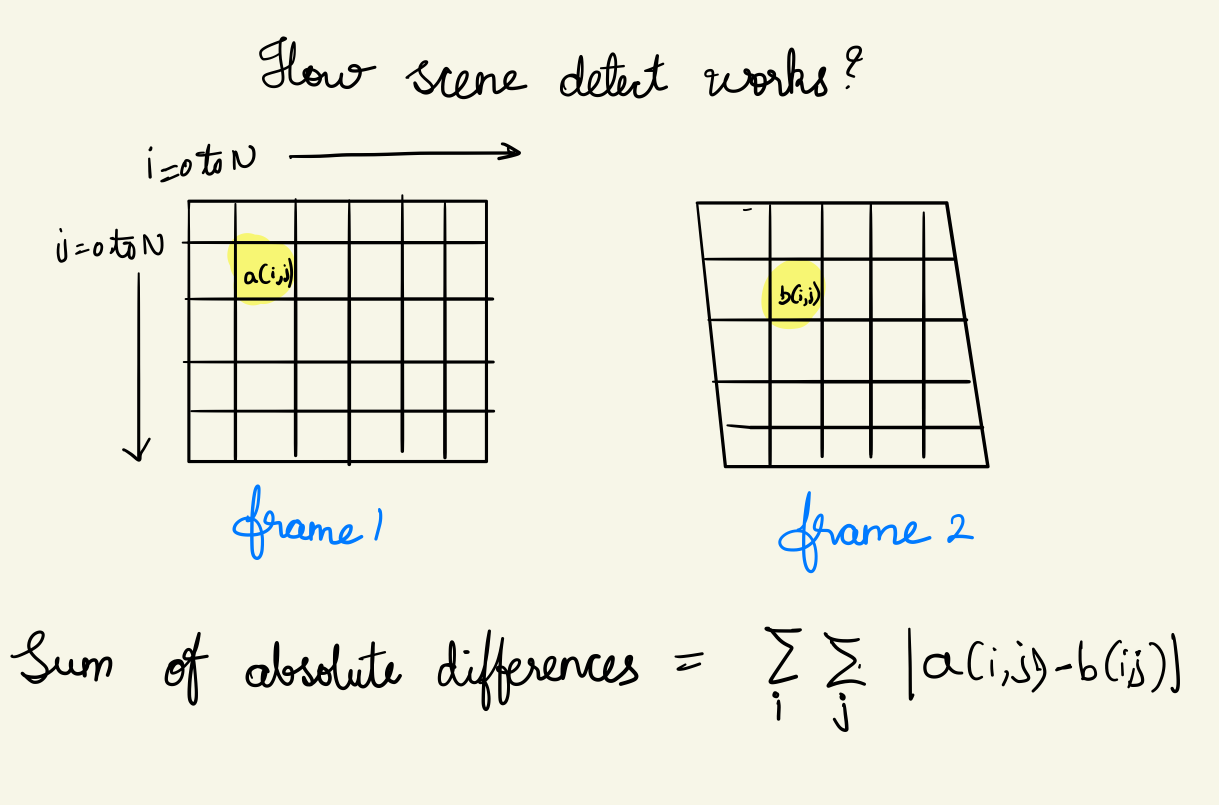 How scene detect works?
i=0 to N
j=0 to N
a(i,j)
b(i,j)
frame 1
frame 2
Sum of absolute differences = ∑i ∑j |a(i,j)-b(i,j)|